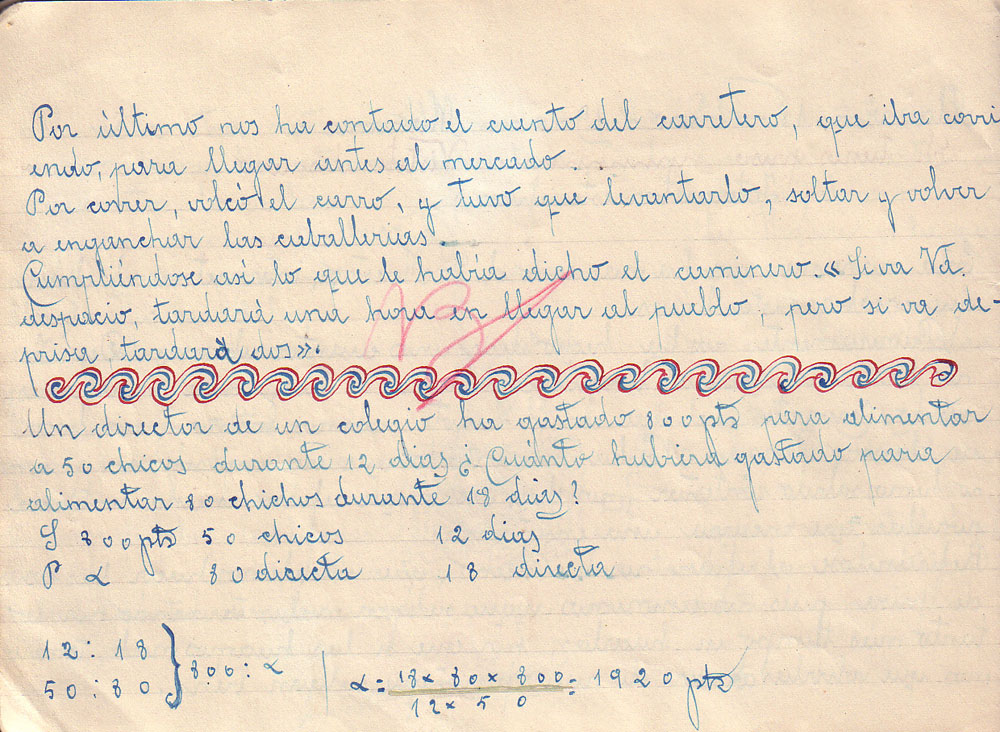 Por último nos ha contado el cuento del carretero, que iba corri
endo, para llegar antes al mercado.
Por correr, volcó el carro, y tuvo que levantarlo, soltar y volver
a enganchar las caballerias.
Cumpliéndose así lo que le había dicho el caminero. «Si va Vd.
despacio, tardará una hora en llegar al pueblo, pero si va de-
prisa tardará dos».
Un director de un colegio ha gastado 800 pts para alimentar
a 50 chicos durante 12 dias ¿Cuánto hubiera gastado para
alimentar 80 chichos durante 18 dias?
S 800 pts 50 chicos 12 dias
P x 80 directa 18 directa
12 : 18
50 : 80 } 800 : x | x = 18 x 80 x 800 = 1920 pts
12 x 50